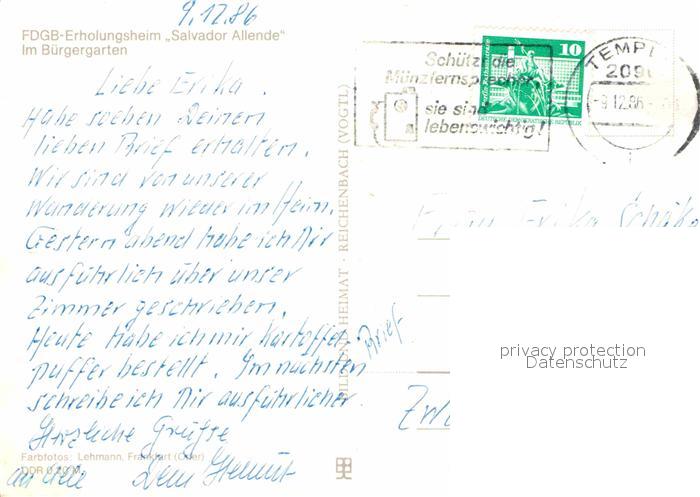 9.12.86
FDGB-Erholungsheim „Salvador Allende"
Im Bürgergarten
Liebe Erika.
Habe soeben Deinen
lieben Brief erhalten.
Wir sind von unserer
Wanderung wieder im Heim.
Gestern abend habe ich Dir
ausführlich über unser
Zimmer geschrieben.
Heute habe ich mir Kartoffel
puffer bestellt. Im nächsten Brief
schreibe ich Dir ausführlicher.
Herzliche Grüsse
an alle Dein Helmut
Farbfotos: Lehmann, Frankfurt (Oder)
DDR 0,20 M
BILD UND HEIMAT · REICHENBACH (VOGTL)
Schützt die
Münzfernsprecher,
sie sind
lebenswichtig!
10
DEUTSCHE DEMOKRATISCHE REPUBLIK
TEMPL
209
-9.12.86
Frau Erika
privacy protection
Datenschutz